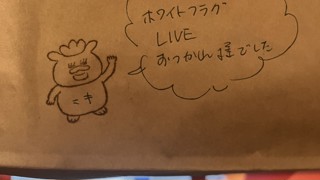 ホワイトフラグ
LIVE
おつかれ様でした
ニキ